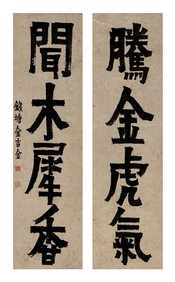 騰金虎氣
聞木犀香
錢塘金吉金